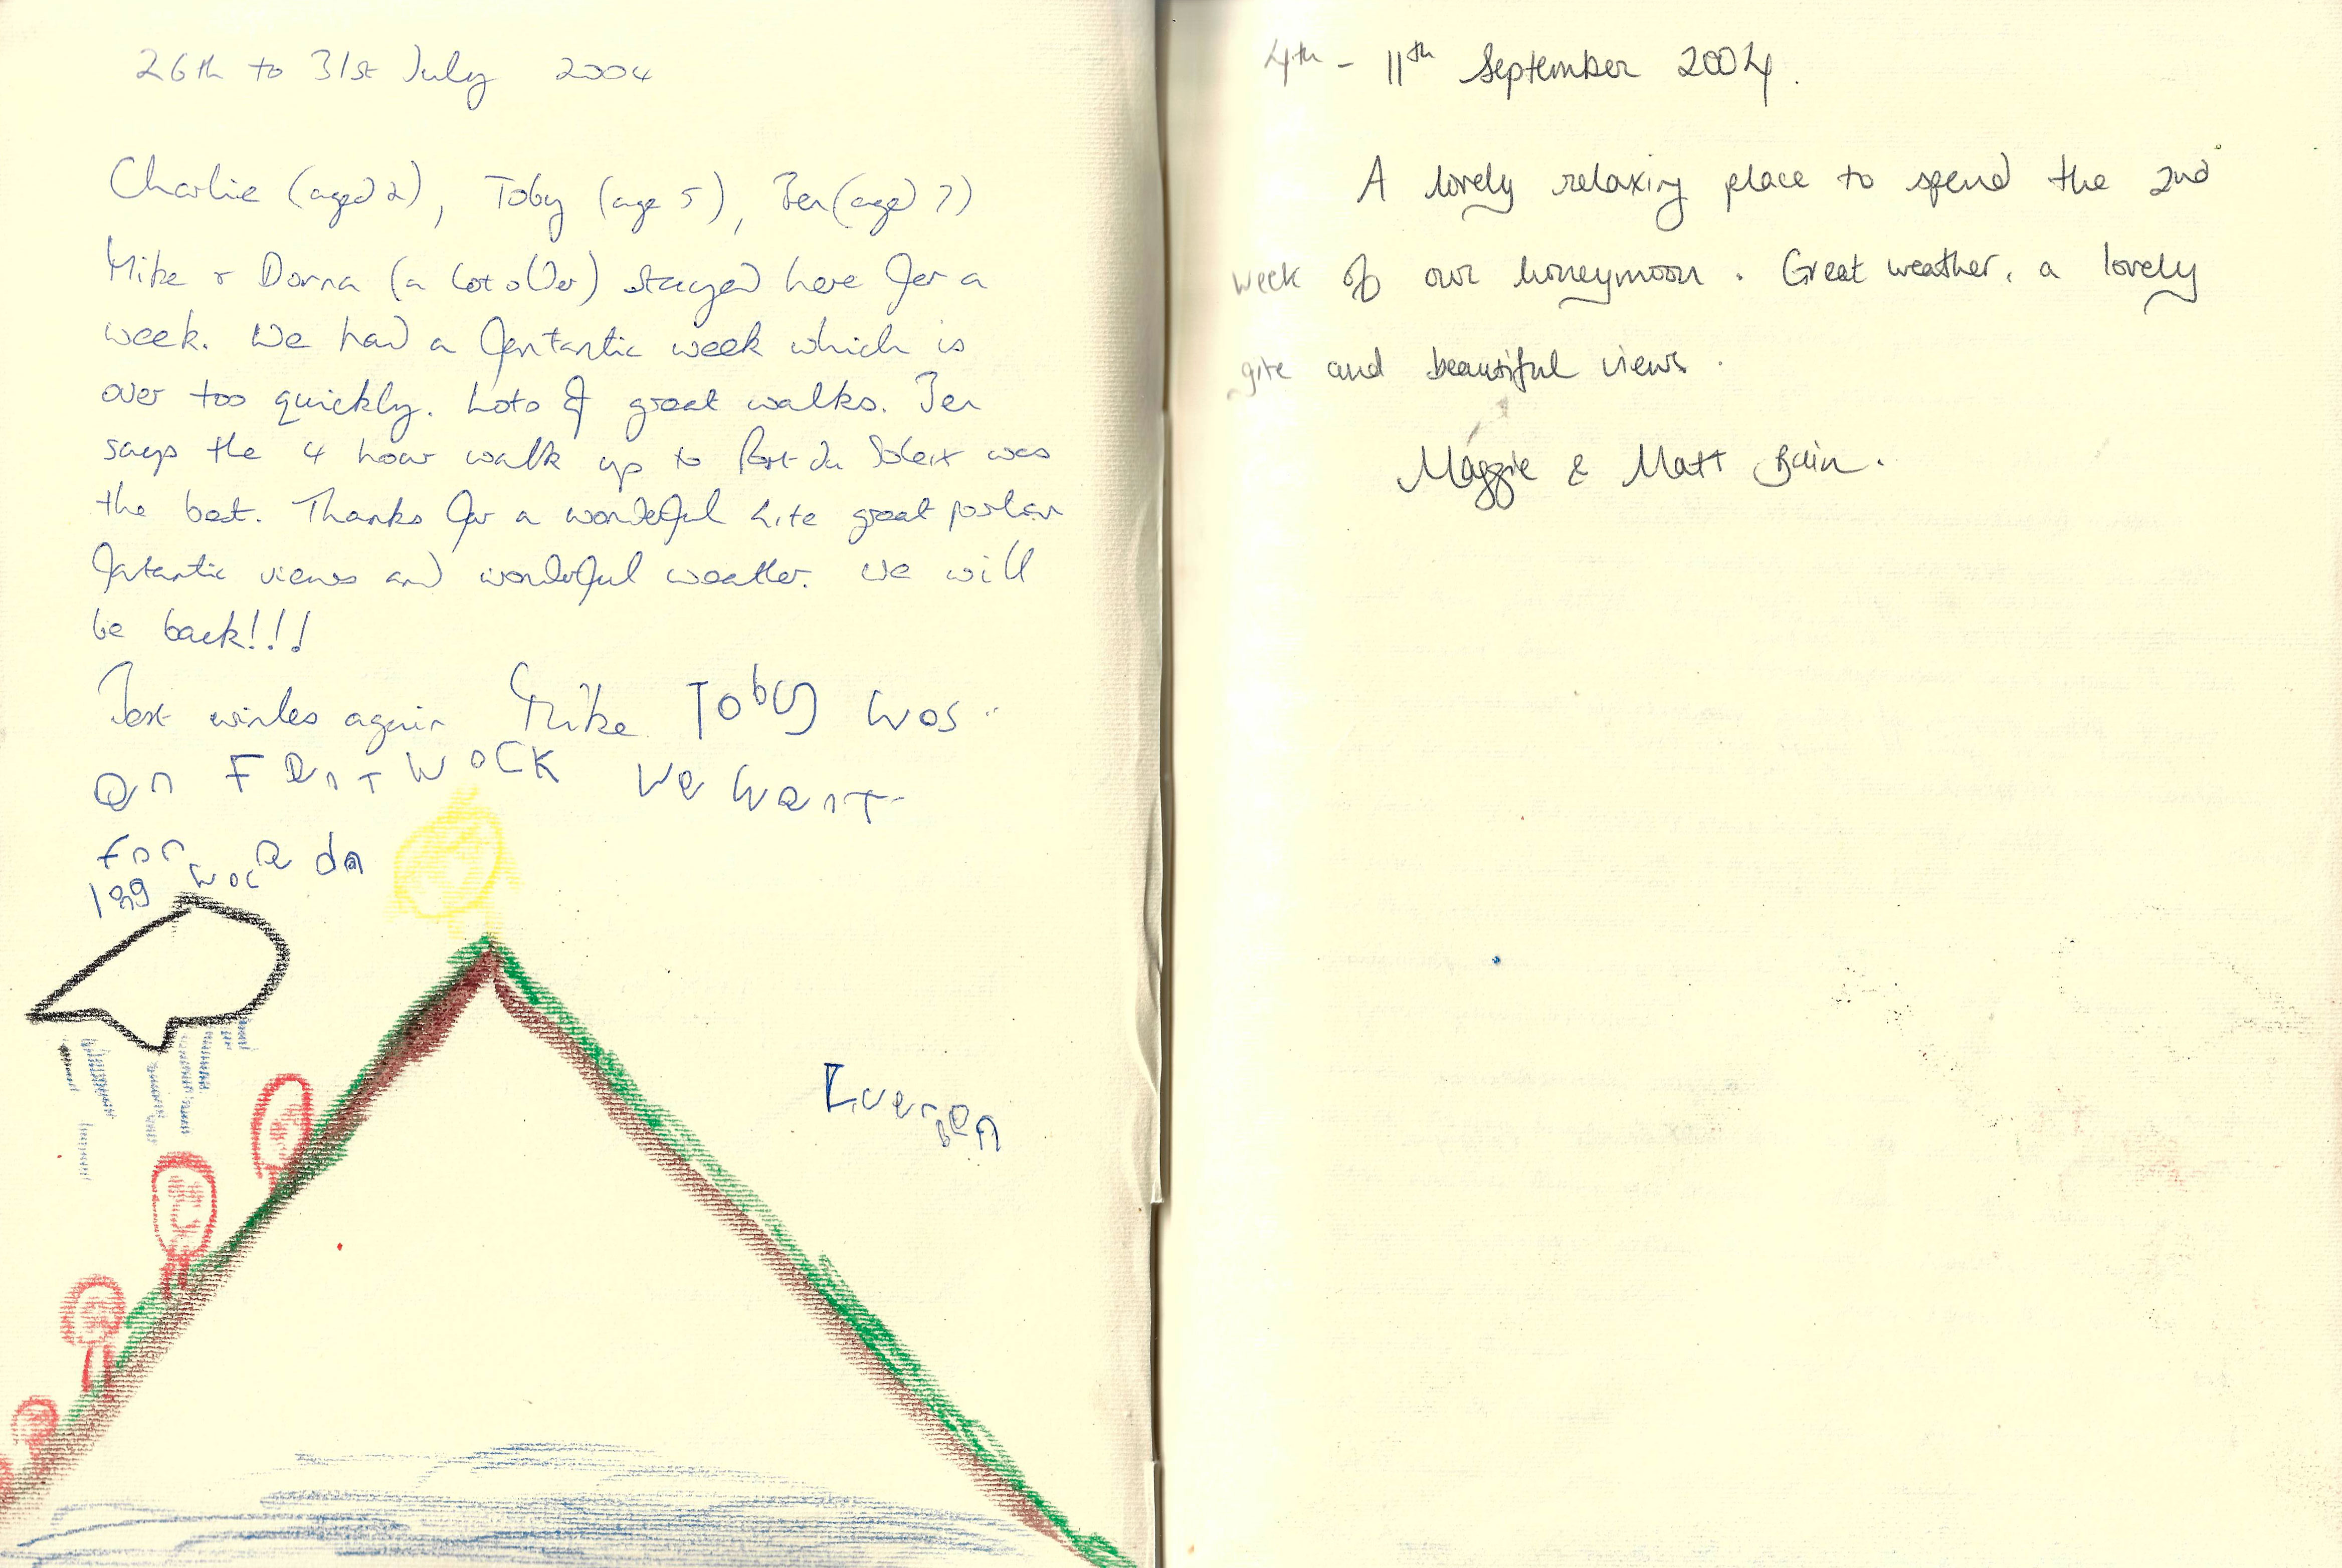 26th to 31st July 2004
Charlie (aged 2), Toby (age 5), Ben (aged 7)
Mike & Donna (a lot older) stayed here for a
week. We had a fantastic week which is
over too quickly. Lots of great walks. Ben
says the 4 hour walk up to Port du Soleix was
the best. Thanks for a wonderful gite great
fantastic views and wonderful weather. We will
be back!!!
Best wishes again Mike TOby wos
on FenT WOCK We Went
For a
Iveren
4th - 11th September 2004.
A lovely relaxing place to spend the 2nd
week of our honeymoon. Great weather, a lovely
gite and beautiful views.
Maggie & Matt Bain.